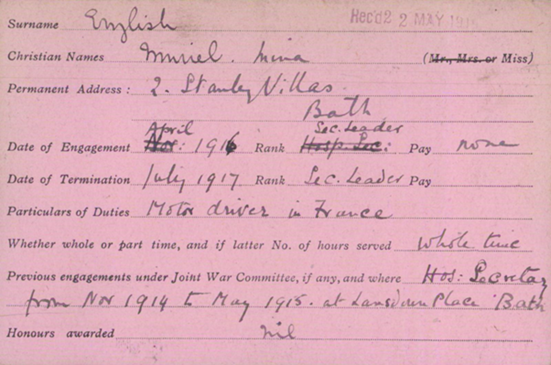 Surname English Rec'd 2 2 MAY 19
Christian Names Muriel. Mina (Mr., Mrs. or Miss)
Permanent Address: 2. Stanley Villas.
Bath
April Sec. Leader
Date of Engagement Nov: 1916 Rank Hosp. Sec: Pay none
Date of Termination July 1917 Rank Sec. Leader Pay
Particulars of Duties Motor driver in France
Whether whole or part time, and if latter No. of hours served Whole time
Previous engagements under Joint War Committee, if any, and where Hos: Secretary
from Nov 1914 to May 1915. at Lansdown Place Bath
Honours awarded nil